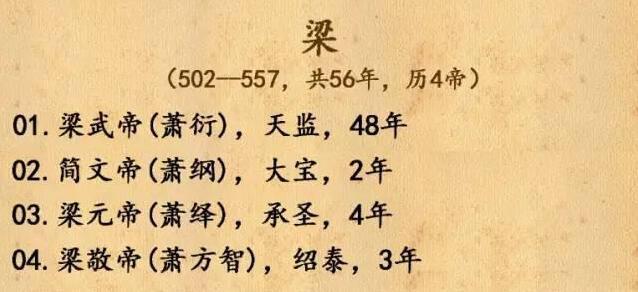 梁
(502—557，共56年，历4帝)
01.梁武帝(萧衍)，天监，48年
02.简文帝(萧纲)，大宝，2年
03.梁元帝(萧绎)，承圣，4年
04.梁敬帝(萧方智)，绍泰，3年